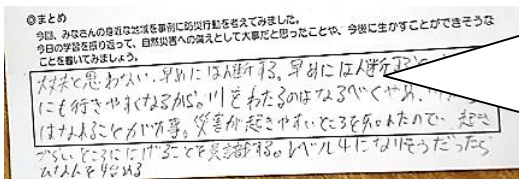 ◎まとめ
今回、みなさんの身近な地域を事例に防災行動を考えてみました。
今日の学習を振り返って、自然災害への備えとして大事だと思ったことや、今後に生かすことができそうな
ことを書いてみましょう。
大丈夫と思わない、早めにはん断する。早めにはん断すると
にも行きやすくなるから。川をわたるのはなるべくやめ、
はなれることが大事。災害が起きやすいところを知れたので、起き
づらいところににげることを意識する。レベル4になりそうだったら
ひなんを始める